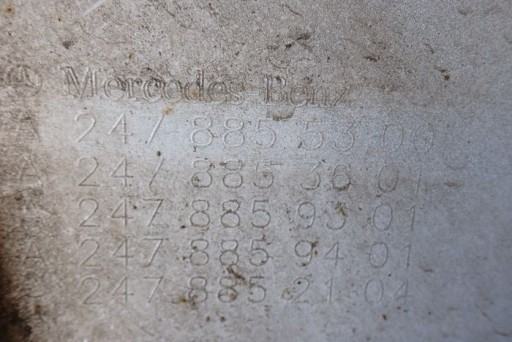 Mercedes Benz
A 247 885 53 00
A 247 885 38 01
A 247 885 93 01
A 247 885 94 01
A 247 885 21 04